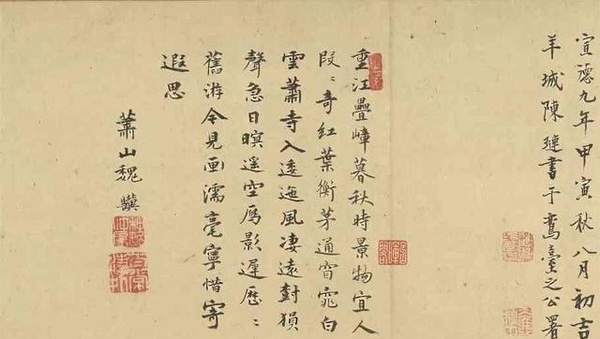 宣德九年甲寅秋八月初吉
羊城陳璉書于鸞臺之公署
重江疊嶂暮秋時景物宜人
段〻奇紅葉衡茅通窅窕白
雲蕭寺入逶迤風凄遠對猿
聲急日暝遥空鴈影遲歷〻
舊游今見画濡毫寧惜寄
遐思
蕭山魏驥